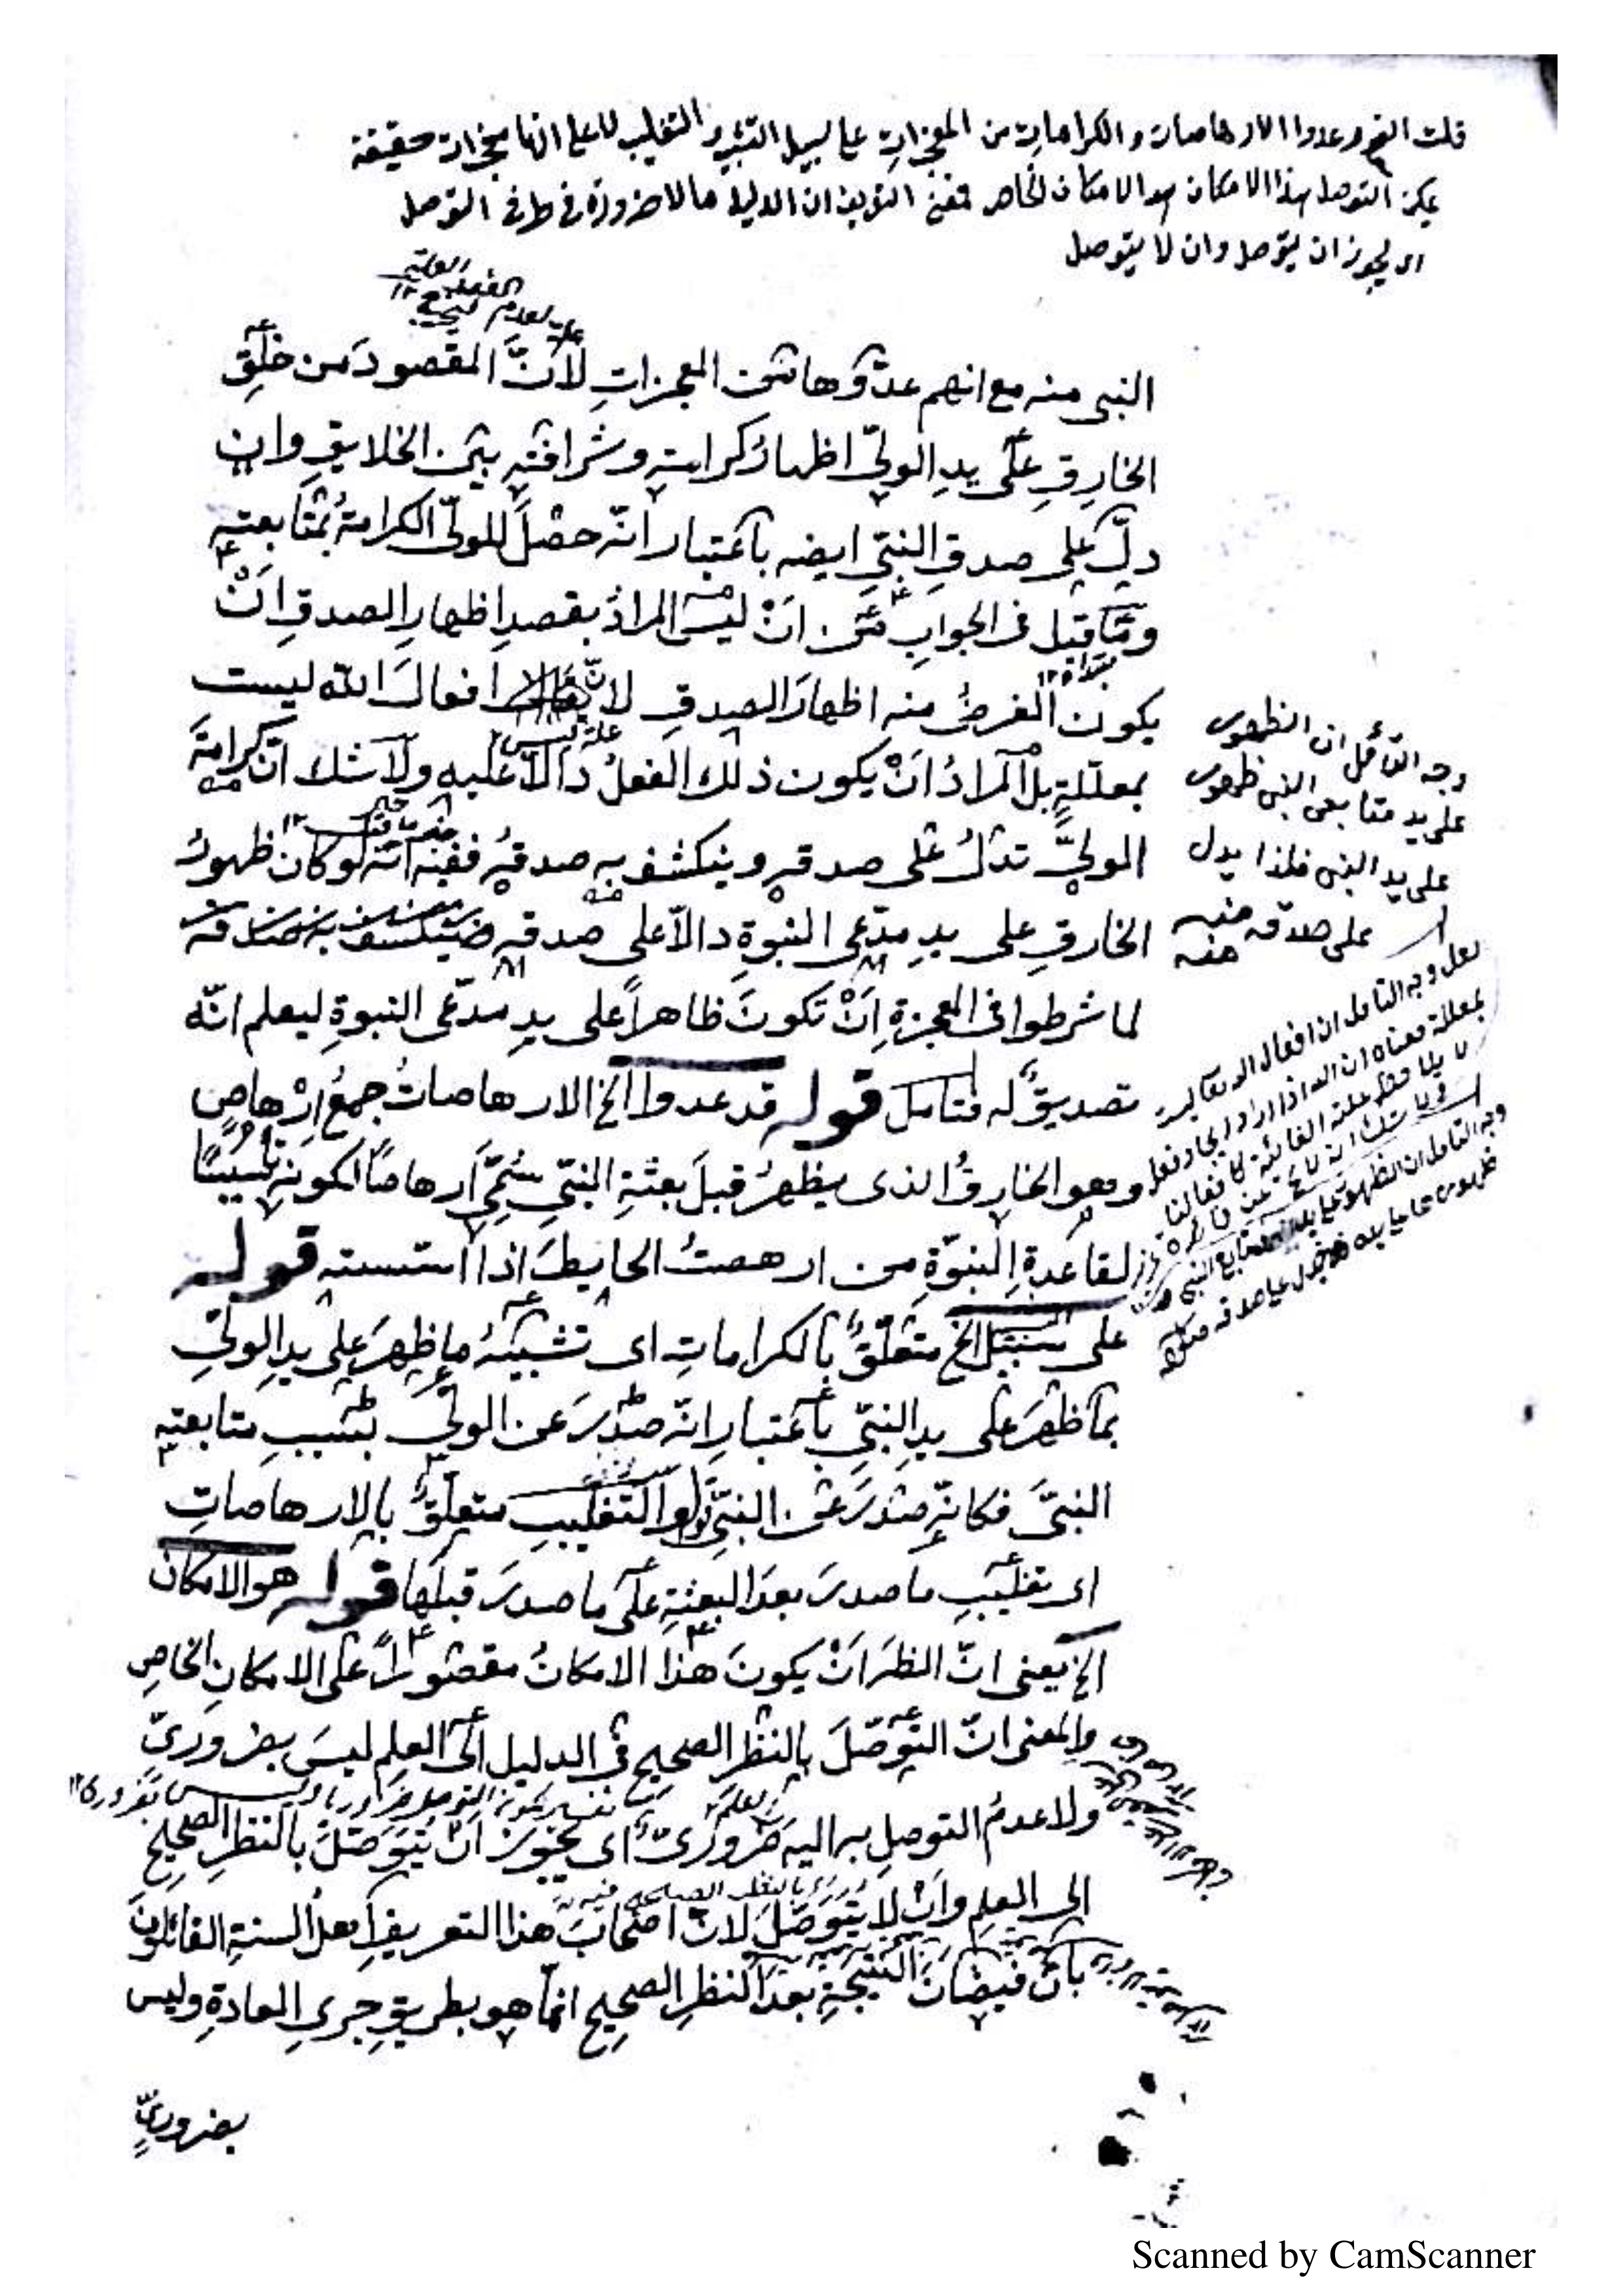 قلت القوم عدوا الارهاصات والكرامات من المعجزات على سبيل التشبيه والتغليب لا على انها معجزات حقيقة
يمكن التوصل هذا الامكان هو الامكان الخاص فمعنى التعريف ان الدليل ما لا ضرورة في طرفي التوصل
اى يجوز ان يتوصل وان لا يتوصل
علة لعدم
النبى منه مع انهم عدّوها من المعجزاتِ لأنّ المقصودَ من خلقِ
الخارقِ على يدِ الولىّ اظهارُ كرامتِه وشرافتِه بين الخلايقِ وان
دلّ على صدقِ النبىّ ايضه باعتبار انّه حصلَ للولىّ الكرامةُ بمتابعتِه
وما قيل فى الجوابِ من انْ ليس المرادُ بقصدِ اظهارِ الصدقِ انْ
مبتداء ١٢
يكون الغرضُ منه اظهارَ الصدقِ لانّ افعالَ الله ليست
علة ليس
بمعلّلةٍ بل المرادُ انْ يكون ذلك الفعلُ دالاّ عليه ولا شك انّ كرامةَ
خبر ما قيل ١٢
الولىِّ تدلُّ على صدقِه وينكشف به صدقُه ففيه انّه لو كان ظهورُ
الخارقِ على يدِ مدّعى النبوةِ دالاّ على صدقِه
لما شرطوا فى المعجزةِ انْ تكونَ ظاهراً على يدِ مدّعى النبوةِ ليعلم انّه
تصديقٌ له فتامل قوله قد عدوا الخ الارهاصاتُ جمعُ ارْهاصٍ
وهو الخارقُ الذى يظهرُ قبلَ بعثةِ النبىّ سُمّىَ ارهاصاً لكونِه تأسيسًا
لقاعدةِ النبوّةِ من ارهصتُ الحايطَ اذا اسّسته قوله
على سبيل الخ متعلّقٌ بالكراماتِ اى تشبيهُ ما ظهرَ على يدِ الولىّ
بما ظهرَ على يدِ النبىّ باعتبارِ انّه صدرَ عن الولىّ بسببِ متابعتِه
النبىَّ فكانّه صدرَ عن النبىّ قوله والتغليب متعلّقٌ بالارهاصاتِ
اى تغليبِ ما صدرَ بعدَ البعثةِ على ما صدرَ قبلَها قوله هو الامكان
الخ يعنى انّ النظرَ انْ يكونَ هذا الامكانُ مقصوراً على الامكانِ الخاصِ
والمعنى انّ التوصّلَ بالنظرِ الصحيحِ فى الدليلِ الى العلمِ ليسَ بضرورىّ
ولا عدمُ التوصلِ به اليه ضرورىٌّ اى يجوزُ انْ يتوصّلَ بالنظرِ الصحيحِ
الى العلمِ وانْ لا يتوصّلَ لانّ اصحابَ هذا التعريفِ اهلُ السنةِ القائلونَ
بانّ فيضانَ النتيجةِ بعدَ النظرِ الصحيحِ انّما هو بطريقِ جرىِ العادةِ وليس
بضرورىٍّ
وجه التأمل ان الظهور
على يد متابعى النبى ظهور
على يد النبى فلذا يدل
على صدقه منه
منه
لعل وجه التامل ان افعال الله تعالى
بمعللة معناه ان الله اذا اراد ايجاد فعل
لا يلاحظ علة الغائية كافعالنا
وجه التامل ان الظهور على يد متابع النبى
Scanned by CamScanner